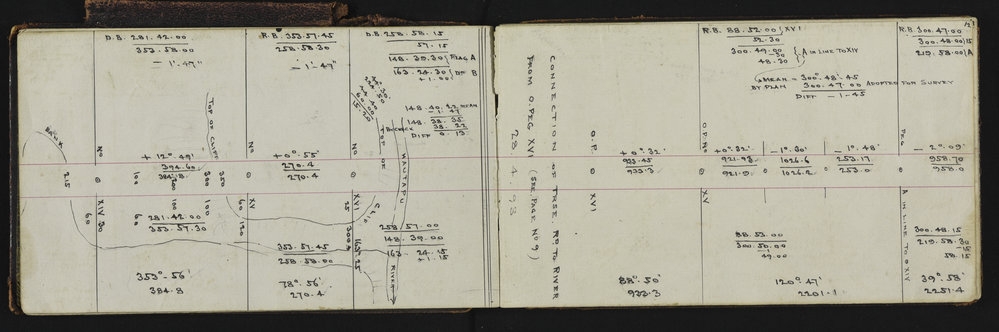 D.B. 281.42.00
353.58.00
- 1'.47"
R.B. 353.57.45
258.58.30
- 1'.47"
D.B. 258.58.15
57.15
148.39.30 } FLAG A
163.24.30 } DO B
+ 1.00
148.40.22 MEAN
- 1.47
148.38.35
38.22
DIFF 0.13
BANK
TOP OF CLIFF
TOP OF
CLIFF
HAUTAPU
RIVER
NO
XIV
NO
XV
NO
XVI
+ 12°.49'
394.60
384.8
+ 0°.55'
270.4
270.4
215
100
200
300
350
60
60
100
60
120
25
30
281.42.00
353.57.30
353.57.45
258.58.00
258.57.00
148.39.00
163.24.15
+ 1.15
353°-56'
384.8
78°.56'
270.4
CONNECTION OF TRSE. RD TO RIVER
FROM O.PEG XVI (SEE PAGE NO 9)
28.4.98
R.B. 88.52.00 / XVI
52.30
300.49.00
- 30
48.30
{ A IN LINE TO XIV
MEAN = 300°.48'.45
BY PLAN 300.47.00 ADOPTED FOR SURVEY
DIFF - 1-45
R.B. 300.47.00
300.48.00
219.58.00 / A
O.P.
XVI
+ 0°.32'
933.45
933.3
O.P. NO
XV
+ 0°.32'
921.93
921.9
- 1°.30'
1026.6
1026.2
- 1°.48'
253.17
253.0
PEG
A IN LINE TO O XIV
- 2°.09'
958.70
958.0
88.53.00
300.50.00
49.00
300.48.15
219.58.30
15
58.15
88°.50'
933.3
120°.47'
2201.1
39°.58'
2251.4